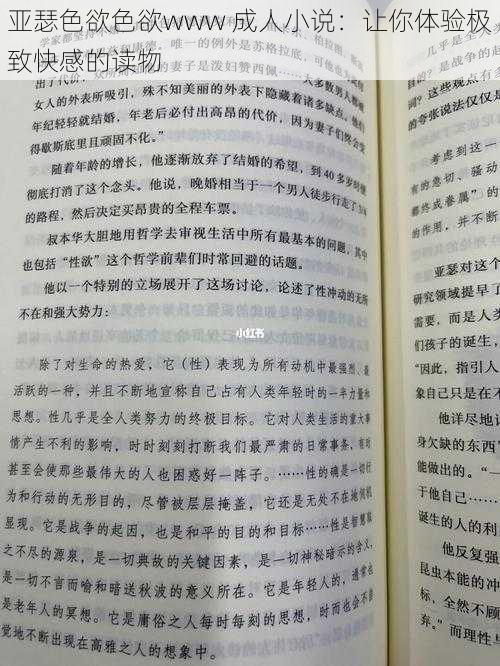 亚瑟色欲色欲www 成人小说：让你体验极
致快感的读物
学家都坚持单身。唯一的例外是苏格拉底，
女人的外表所吸引，殊不知美丽的外表下隐藏着诸多缺点。他们
年纪轻轻就结婚，年老后必付出高昂的代价，因为妻子们终会变
得歇斯底里且顽固不化。”
随着年龄的增长，他逐渐放弃了结婚的希望，到 40 多岁时便
彻底打消了这个念头。他说，晚婚相当于一个男人徒步行走了 3/4
的路程，然后决定买昂贵的全程车票。
叔本华大胆地用哲学去审视生活中所有最基本的问题，其中
也包括“性欲”这个哲学前辈们时常回避的话题。
他以一个特别的立场展开了这场讨论，论述了性冲动的无所
不在和强大势力：
小红书
除了对生命的热爱，它（性）表现为所有动机中最强烈、最
活跃的一种，并且不断地宣称自己占有人类年轻时的一半力量和
思想。性几乎是全人类努力的终极目标。它对人类生活中的重大事
情产生不利的影响，时时刻刻打断我们最严肃的日常事务，有时
甚至会使那些最伟大的人也困惑好一阵子。……性的确是一切行
和行动的无形目的，尽管被层层掩盖，它还是无处不在地伺机
显现。它是战争的起因，也是和平的目的和目标……性是智慧取
之不尽的源泉，是一切典故的关键因素，是一切神秘暗示的含义，
是一切不言而喻和暗送秋波的意义所在。它是年轻人的，通常也
是老年人的冥想。它是庸俗之人每时每刻的思想，时而也会不自
觉地不断出现在高雅之人的想象中。
词？这些观点有
的夸张说法仅仅是
考虑到这一
有的急切、骚动
都终成眷属”的
的作用，并不断
亚瑟对这个
研究领域提早了
需要，而是人类
们孩子的诞生，
“因此，指引人
象自己只是在不
他详尽地讨
身欠缺的东西”
能做出的。“一
于他自己的，
诞生的人的利
他反复强
昆虫本能的冲
标，全然不顾
育”。而诞生